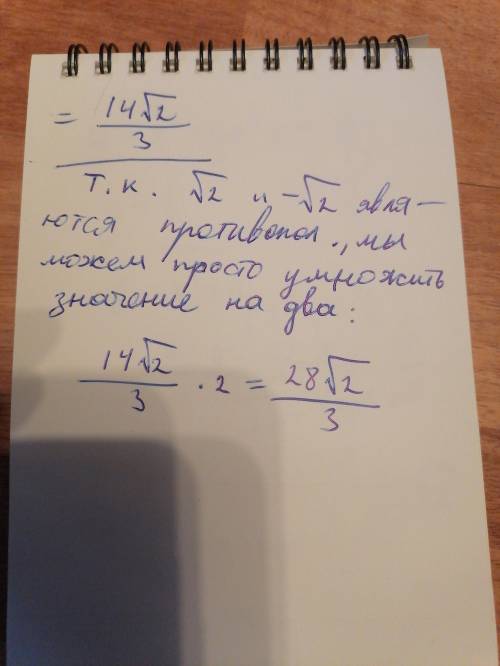 = 14√2/3
т.к. √2 и -√2 явля-
ются противопол., мы
можем просто умножить
значение на два:
14√2/3 · 2 = 28√2/3